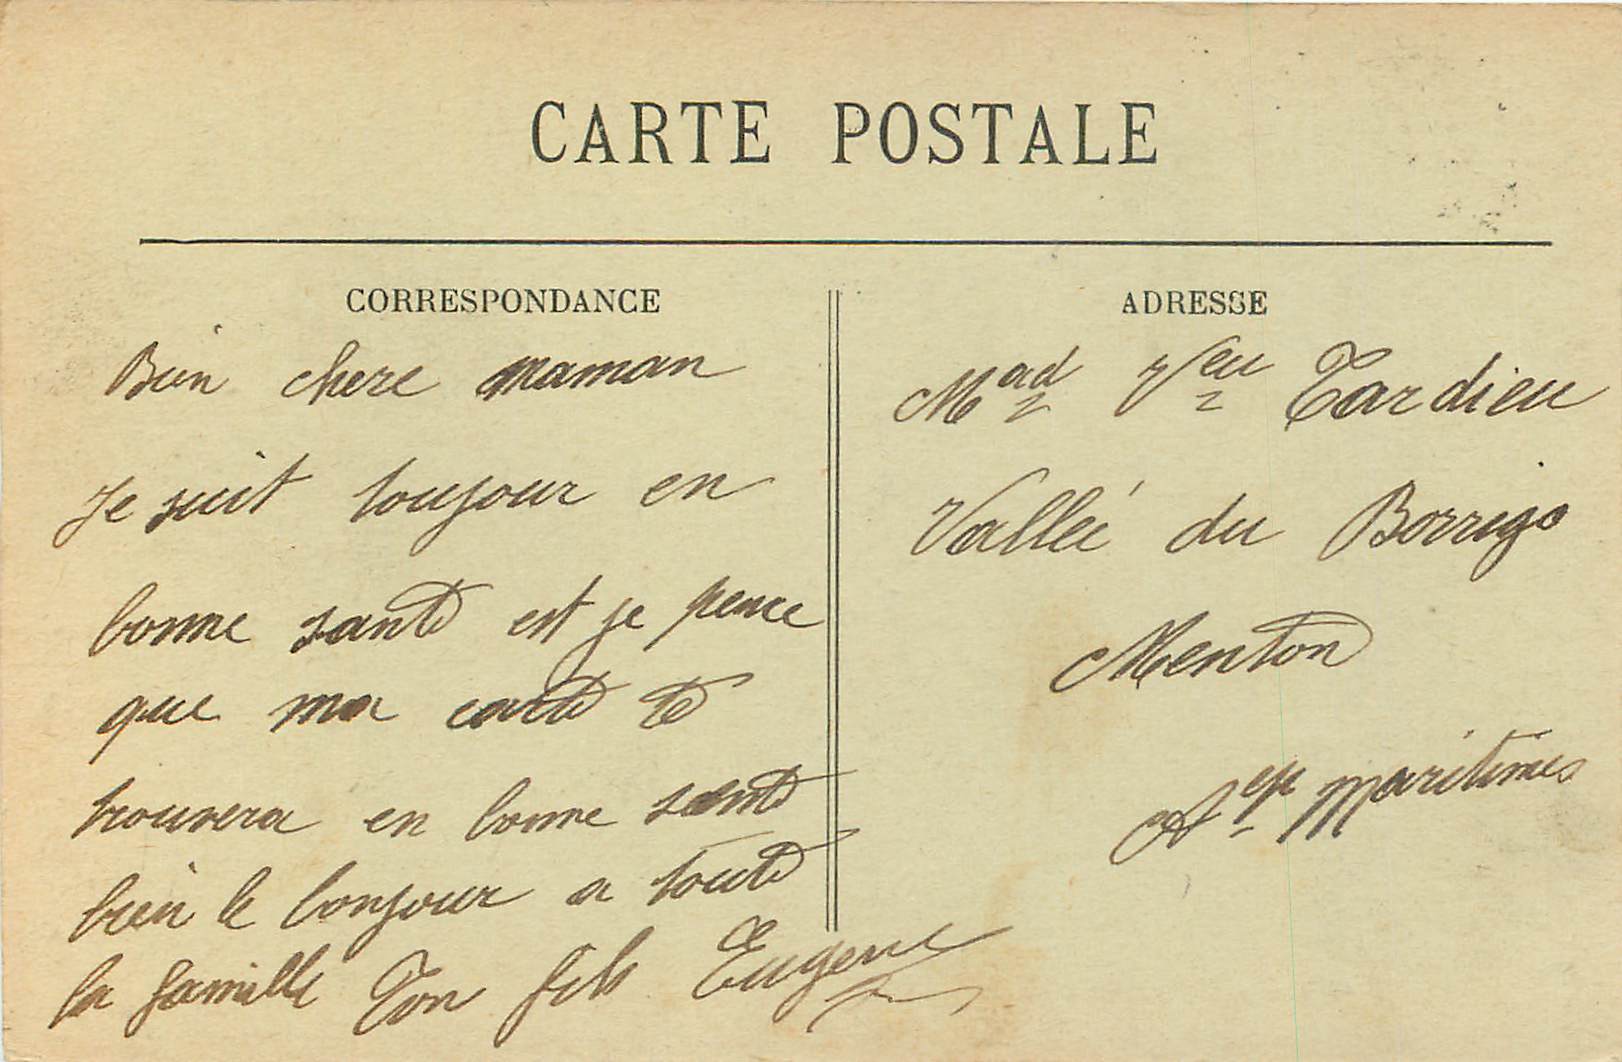 CARTE POSTALE
CORRESPONDANCE
Bien chere maman
Je suit toujour en
bonne santé est je pence
que ma carte te
trouvera en bonne santé
bien le bonjour a toute
la famille Ton fils Eugene
ADRESSE
Mad Veu Tardieu
Vallée du Borrigo
Menton
Alp maritimes